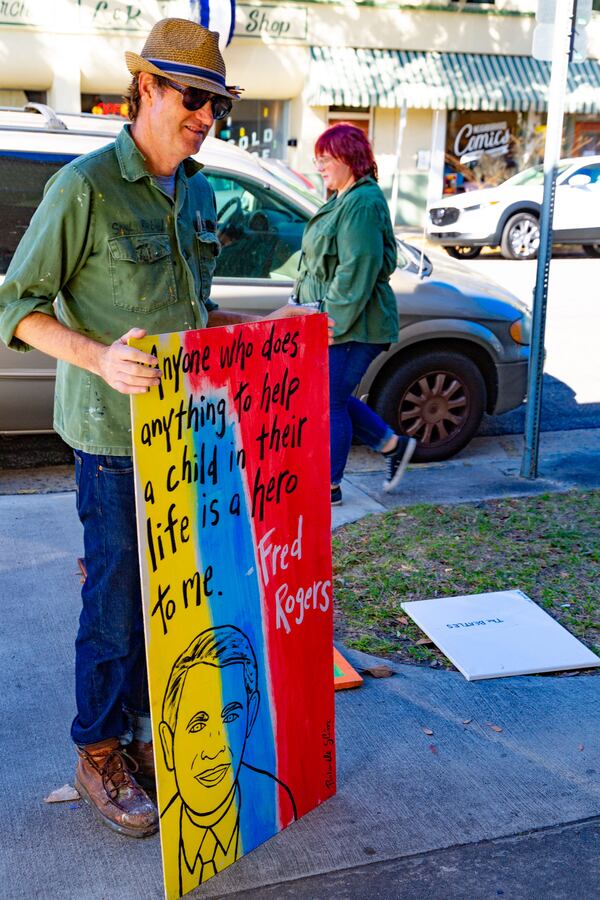 Shop
Comics
Anyone who does
anything to help
a child in their
life is a hero
to me.
Fred
Rogers
THE BEATLES